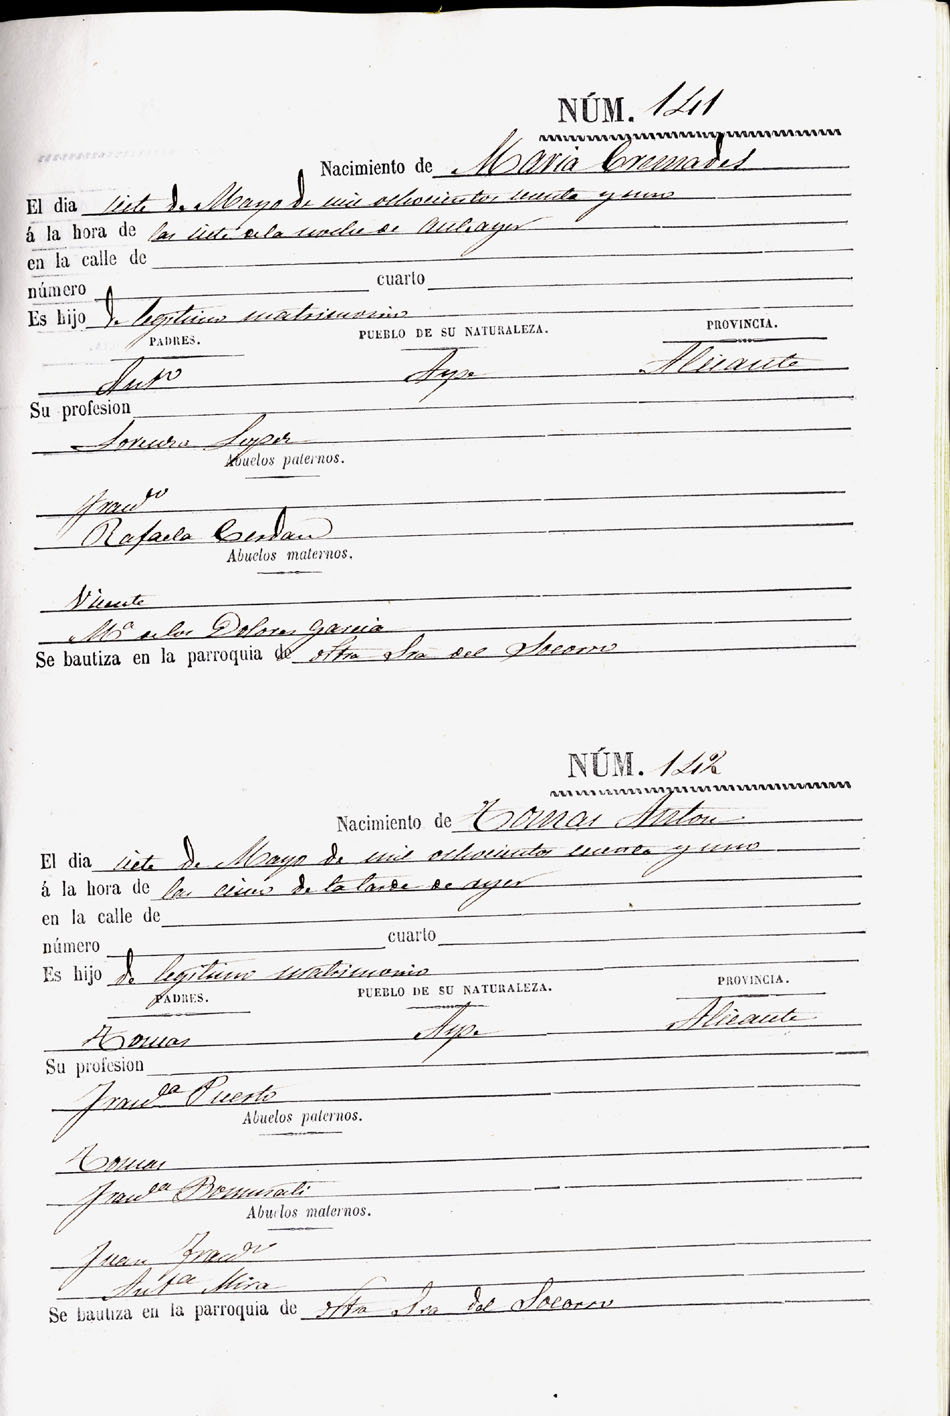 NÚM. 141
Nacimiento de Maria Cremades
El dia siete de Mayo de mil ochocientos y uno
á la hora de las siete de la noche de anteayer
en la calle de
número cuarto
Es hijo de legitimo matrimonio
PADRES. PUEBLO DE SU NATURALEZA. PROVINCIA.
Antº Aspe Alicante
Su profesion
Lorenza Lopez
Abuelos paternos.
Brancº
Rafaela Cerdan
Abuelos maternos.
Vicente
Mª de los Dolores Garcia
Se bautiza en la parroquia de Ntra Sra del Socorro
NÚM. 142
Nacimiento de Tomas Anton
El dia siete de Mayo de mil ochocientos y uno
á la hora de las cinco de la tarde de ayer
en la calle de
número cuarto
Es hijo de legitimo matrimonio
PADRES. PUEBLO DE SU NATURALEZA. PROVINCIA.
Tomas Aspe Alicante
Su profesion
Francª Puerto
Abuelos paternos.
Tomas
Francª
Abuelos maternos.
Juan Francº
Antª Mira
Se bautiza en la parroquia de Ntra Sra del Socorro